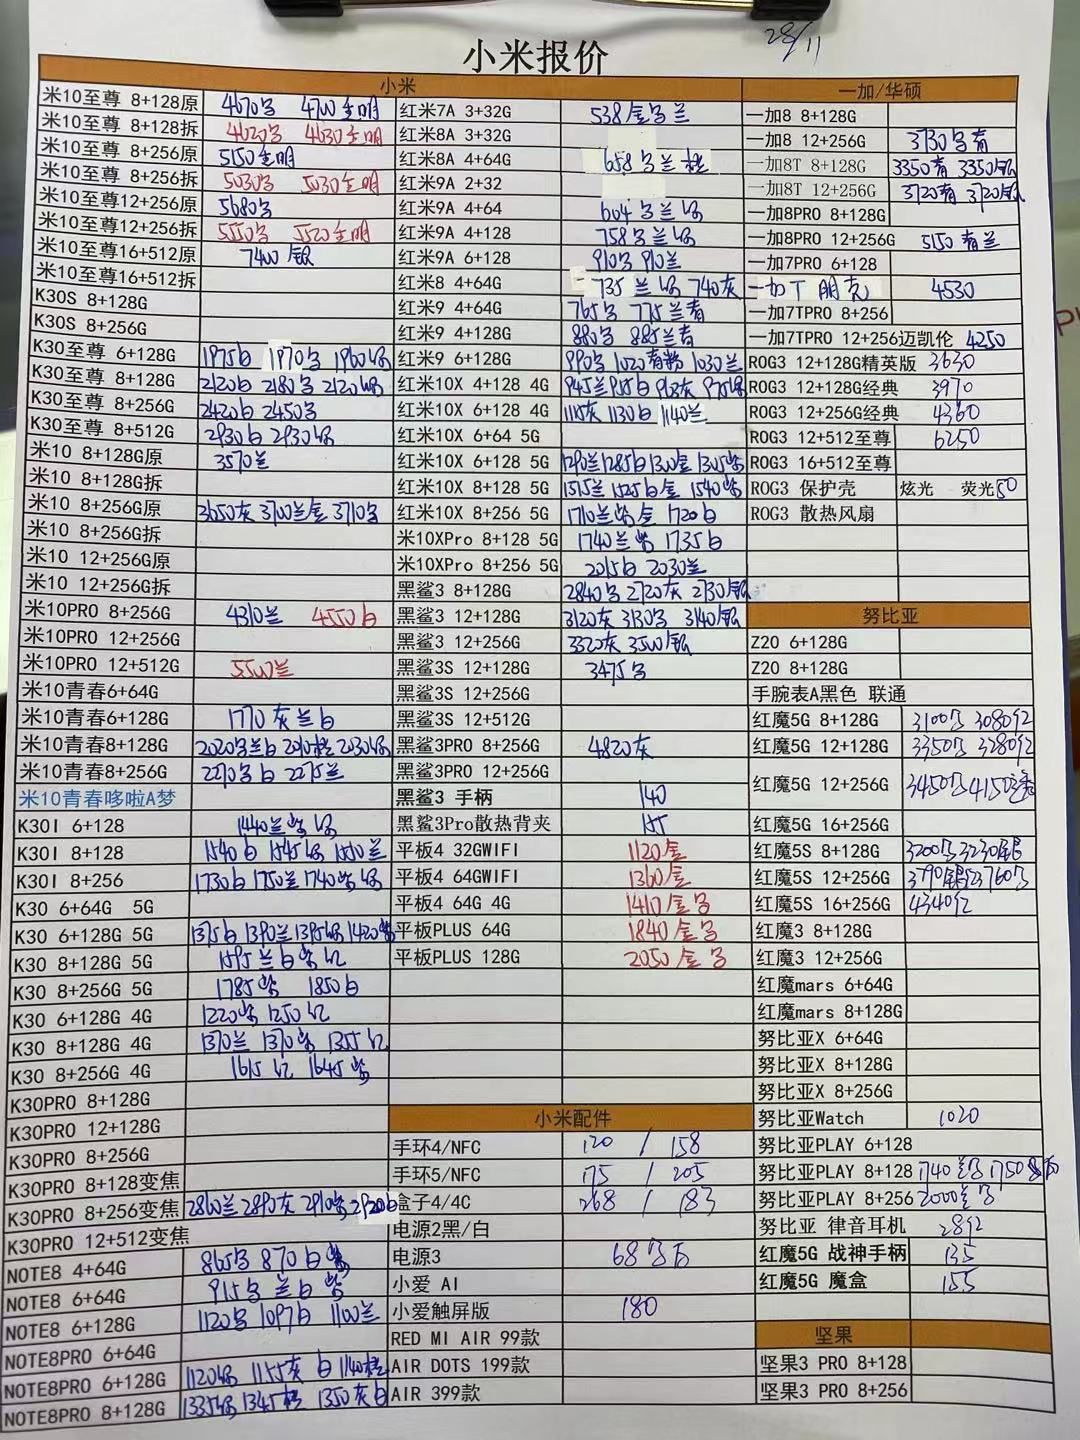 28/11
小米报价
小米
米10至尊 8+128原 4670 4700
米10至尊 8+128拆 4620 4630
米10至尊 8+256原 5150
米10至尊 8+256拆 5030 5030
米10至尊12+256原 5680
米10至尊12+256拆 5550 5520
米10至尊16+512原 7400 银
米10至尊16+512拆
K30S 8+128G
K30S 8+256G
K30至尊 6+128G 1975白 1970 1960
K30至尊 8+128G 2120白 2180 2120
K30至尊 8+256G 2420白 2450
K30至尊 8+512G 2930白 2930
米10 8+128G原 3570兰
米10 8+128G拆
米10 8+256G原 3650灰 3700兰金 3710
米10 8+256G拆
米10 12+256G原
米10 12+256G拆
米10PRO 8+256G 4310兰 4550白
米10PRO 12+256G
米10PRO 12+512G 5500兰
米10青春6+64G
米10青春6+128G 1770灰兰白
米10青春8+128G 2020兰白 2010 2030
米10青春8+256G 2270白 2275兰
米10青春哆啦A梦
K30I 6+128 1440兰紫
K30I 8+128 1540白 1545 1550兰
K30I 8+256 1730白 1750兰 1740紫
K30 6+64G 5G
K30 6+128G 5G 1375白 1390兰 1395 1420紫
K30 8+128G 5G 1595兰白紫红
K30 8+256G 5G 1785紫 1850白
K30 6+128G 4G 1220紫 1250红
K30 8+128G 4G 1370兰 1370紫 1355红
K30 8+256G 4G 1615红 1645紫
K30PRO 8+128G
K30PRO 12+128G
K30PRO 8+256G
K30PRO 8+128变焦
K30PRO 8+256变焦 2860兰 2890灰 2910紫 2920白
K30PRO 12+512变焦
NOTE8 4+64G 865 870白紫
NOTE8 6+64G 915 兰白紫
NOTE8 6+128G 1120 1097白 1100兰
NOTE8PRO 6+64G
NOTE8PRO 6+128G 1120 1155灰白 1140橙
NOTE8PRO 8+128G 1335 1345橙 1350灰白
红米7A 3+32G 538金 兰
红米8A 3+32G
红米8A 4+64G 658 兰橙
红米9A 2+32
红米9A 4+64 604 兰
红米9A 4+128 758 兰
红米9A 6+128 910 910兰
红米8 4+64G 735兰 740灰
红米9 4+64G 765 775兰青
红米9 4+128G 880 885兰青
红米9 6+128G 990 1020青粉 1030兰
红米10X 4+128 4G 945兰 955白 963灰 975
红米10X 6+128 4G 1115灰 1130白 1140兰
红米10X 6+64 5G
红米10X 6+128 5G 1290兰 1285白 1300金 1305紫
红米10X 8+128 5G 1515兰 1525白金 1540紫
红米10X 8+256 5G 1710兰紫金 1720白
米10XPro 8+128 5G 1740兰紫 1735白
米10XPro 8+256 5G 2015白 2030兰
黑鲨3 8+128G 2840 2720灰 2730银
黑鲨3 12+128G 3120灰 3130 3140银
黑鲨3 12+256G 3320灰 3500银
黑鲨3S 12+128G 3475
黑鲨3S 12+256G
黑鲨3S 12+512G
黑鲨3PRO 8+256G 4820灰
黑鲨3PRO 12+256G
黑鲨3 手柄 140
黑鲨3Pro散热背夹 155
平板4 32GWIFI 1120金
平板4 64GWIFI 1360金
平板4 64G 4G 1410金
平板PLUS 64G 1840金
平板PLUS 128G 2050金
小米配件
手环4/NFC 120 / 158
手环5/NFC 175 / 205
盒子4/4C 268 / 183
电源2黑/白
电源3 68
小爱 AI
小爱触屏版 180
RED MI AIR 99款
AIR DOTS 199款
AIR 399款
一加/华硕
一加8 8+128G
一加8 12+256G 3730 青
一加8T 8+128G 3350青 3350银
一加8T 12+256G 3720青 3720银
一加8PRO 8+128G
一加8PRO 12+256G 5150青兰
一加7PRO 6+128
一加T 朋克 4530
一加7TPRO 8+256
一加7TPRO 12+256迈凯伦 4250
ROG3 12+128G精英版 3630
ROG3 12+128G经典 3970
ROG3 12+256G经典 4360
ROG3 12+512至尊 6250
ROG3 16+512至尊
ROG3 保护壳 炫光 荧光50
ROG3 散热风扇
努比亚
Z20 6+128G
Z20 8+128G
手腕表A黑色 联通
红魔5G 8+128G 3100 3080红
红魔5G 12+128G 3350 3280红
红魔5G 12+256G 3450 4150
红魔5G 16+256G
红魔5S 8+128G 3200 3230银
红魔5S 12+256G 3790银 3760
红魔5S 16+256G 4340红
红魔3 8+128G
红魔3 12+256G
红魔mars 6+64G
红魔mars 8+128G
努比亚X 6+64G
努比亚X 8+128G
努比亚X 8+256G
努比亚Watch 1020
努比亚PLAY 6+128
努比亚PLAY 8+128 1740 1750
努比亚PLAY 8+256 2000
努比亚 律音耳机 289
红魔5G 战神手柄 135
红魔5G 魔盒 155
坚果
坚果3 PRO 8+128
坚果3 PRO 8+256